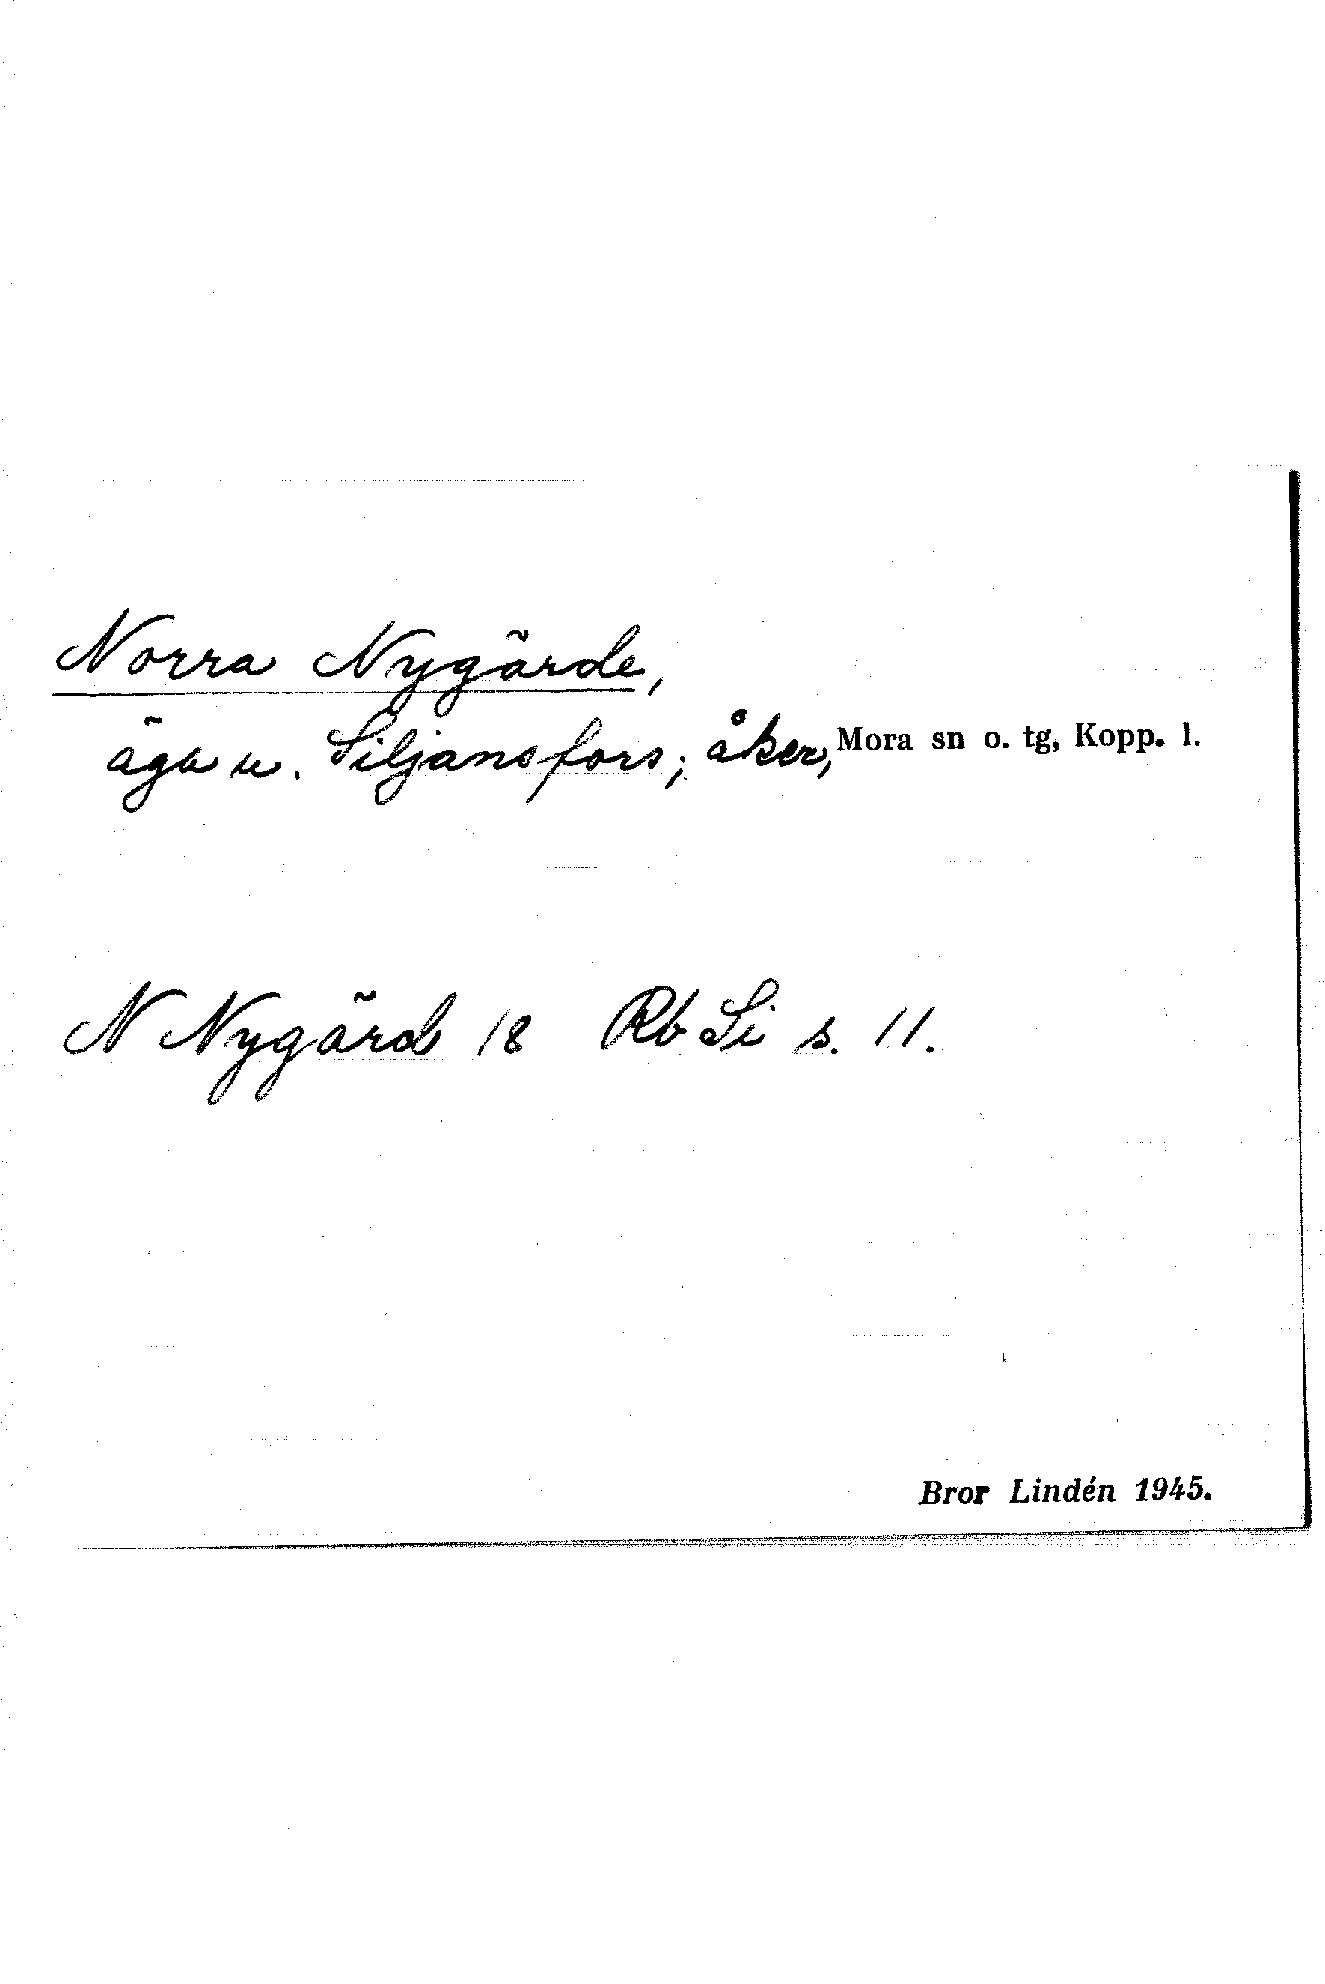 Norra Nygärde,
äga u. Siljansfors; åker, Mora sn o. tg, Kopp. l.
N Nygärd 18 Rb Si s. 11.
Bror Lindén 1945.